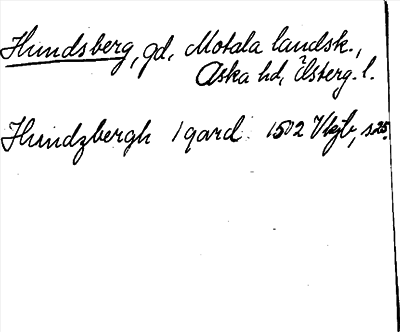 Hundsberg, gd, Motala landsk.,
Aska hd, Österg. l.
Hundzbergh 1 gard 1502 Vkjb, s 25.